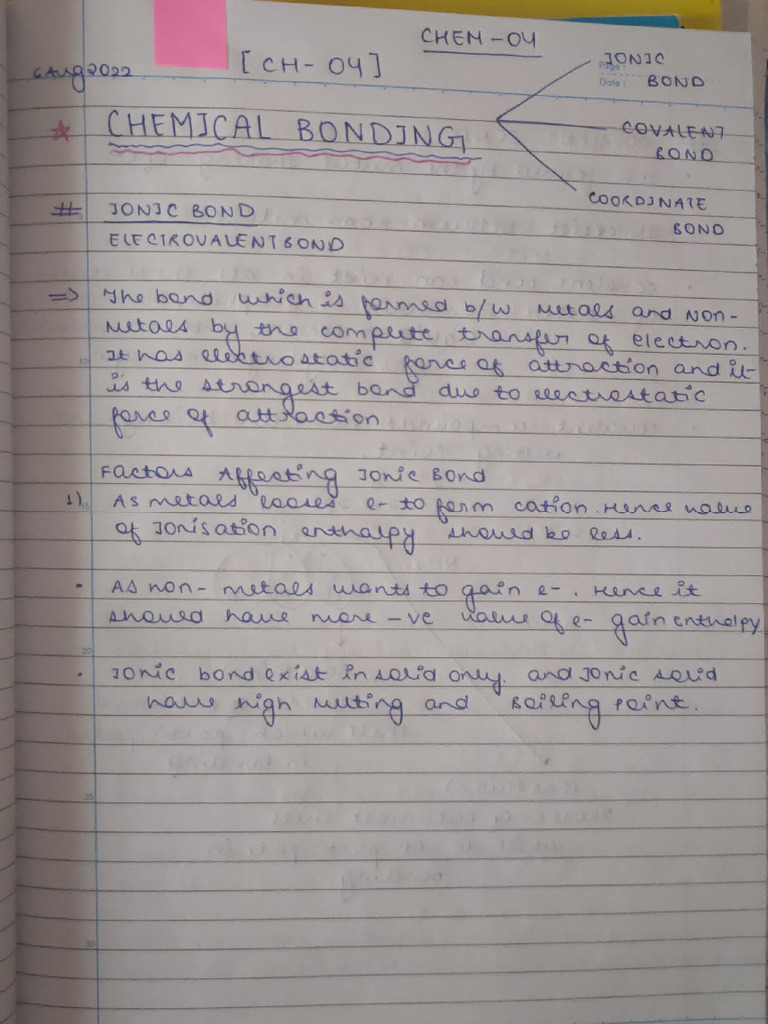 CHEM-04
6Aug2022
[CH-04]
IONIC
Page:
Date:
BOND
* CHEMICAL BONDING
COVALENT
BOND
COORDINATE
BOND
# IONIC BOND
ELECTROVALENT BOND
=> The bond which is formed b/w metals and Non-
metals by the complete transfer of electron.
It has electrostatic force of attraction and it
is the strongest bond due to electrostatic
force of attraction
Factors Affecting Ionic Bond
1) As metals looses e- to form cation. Hence value
of Ionisation enthalpy should be less.
• As non-metals wants to gain e-. Hence it
should have more -ve value of e- gain enthalpy
• Ionic bond exist in solid only. and Ionic solid
have high melting and Boiling point.